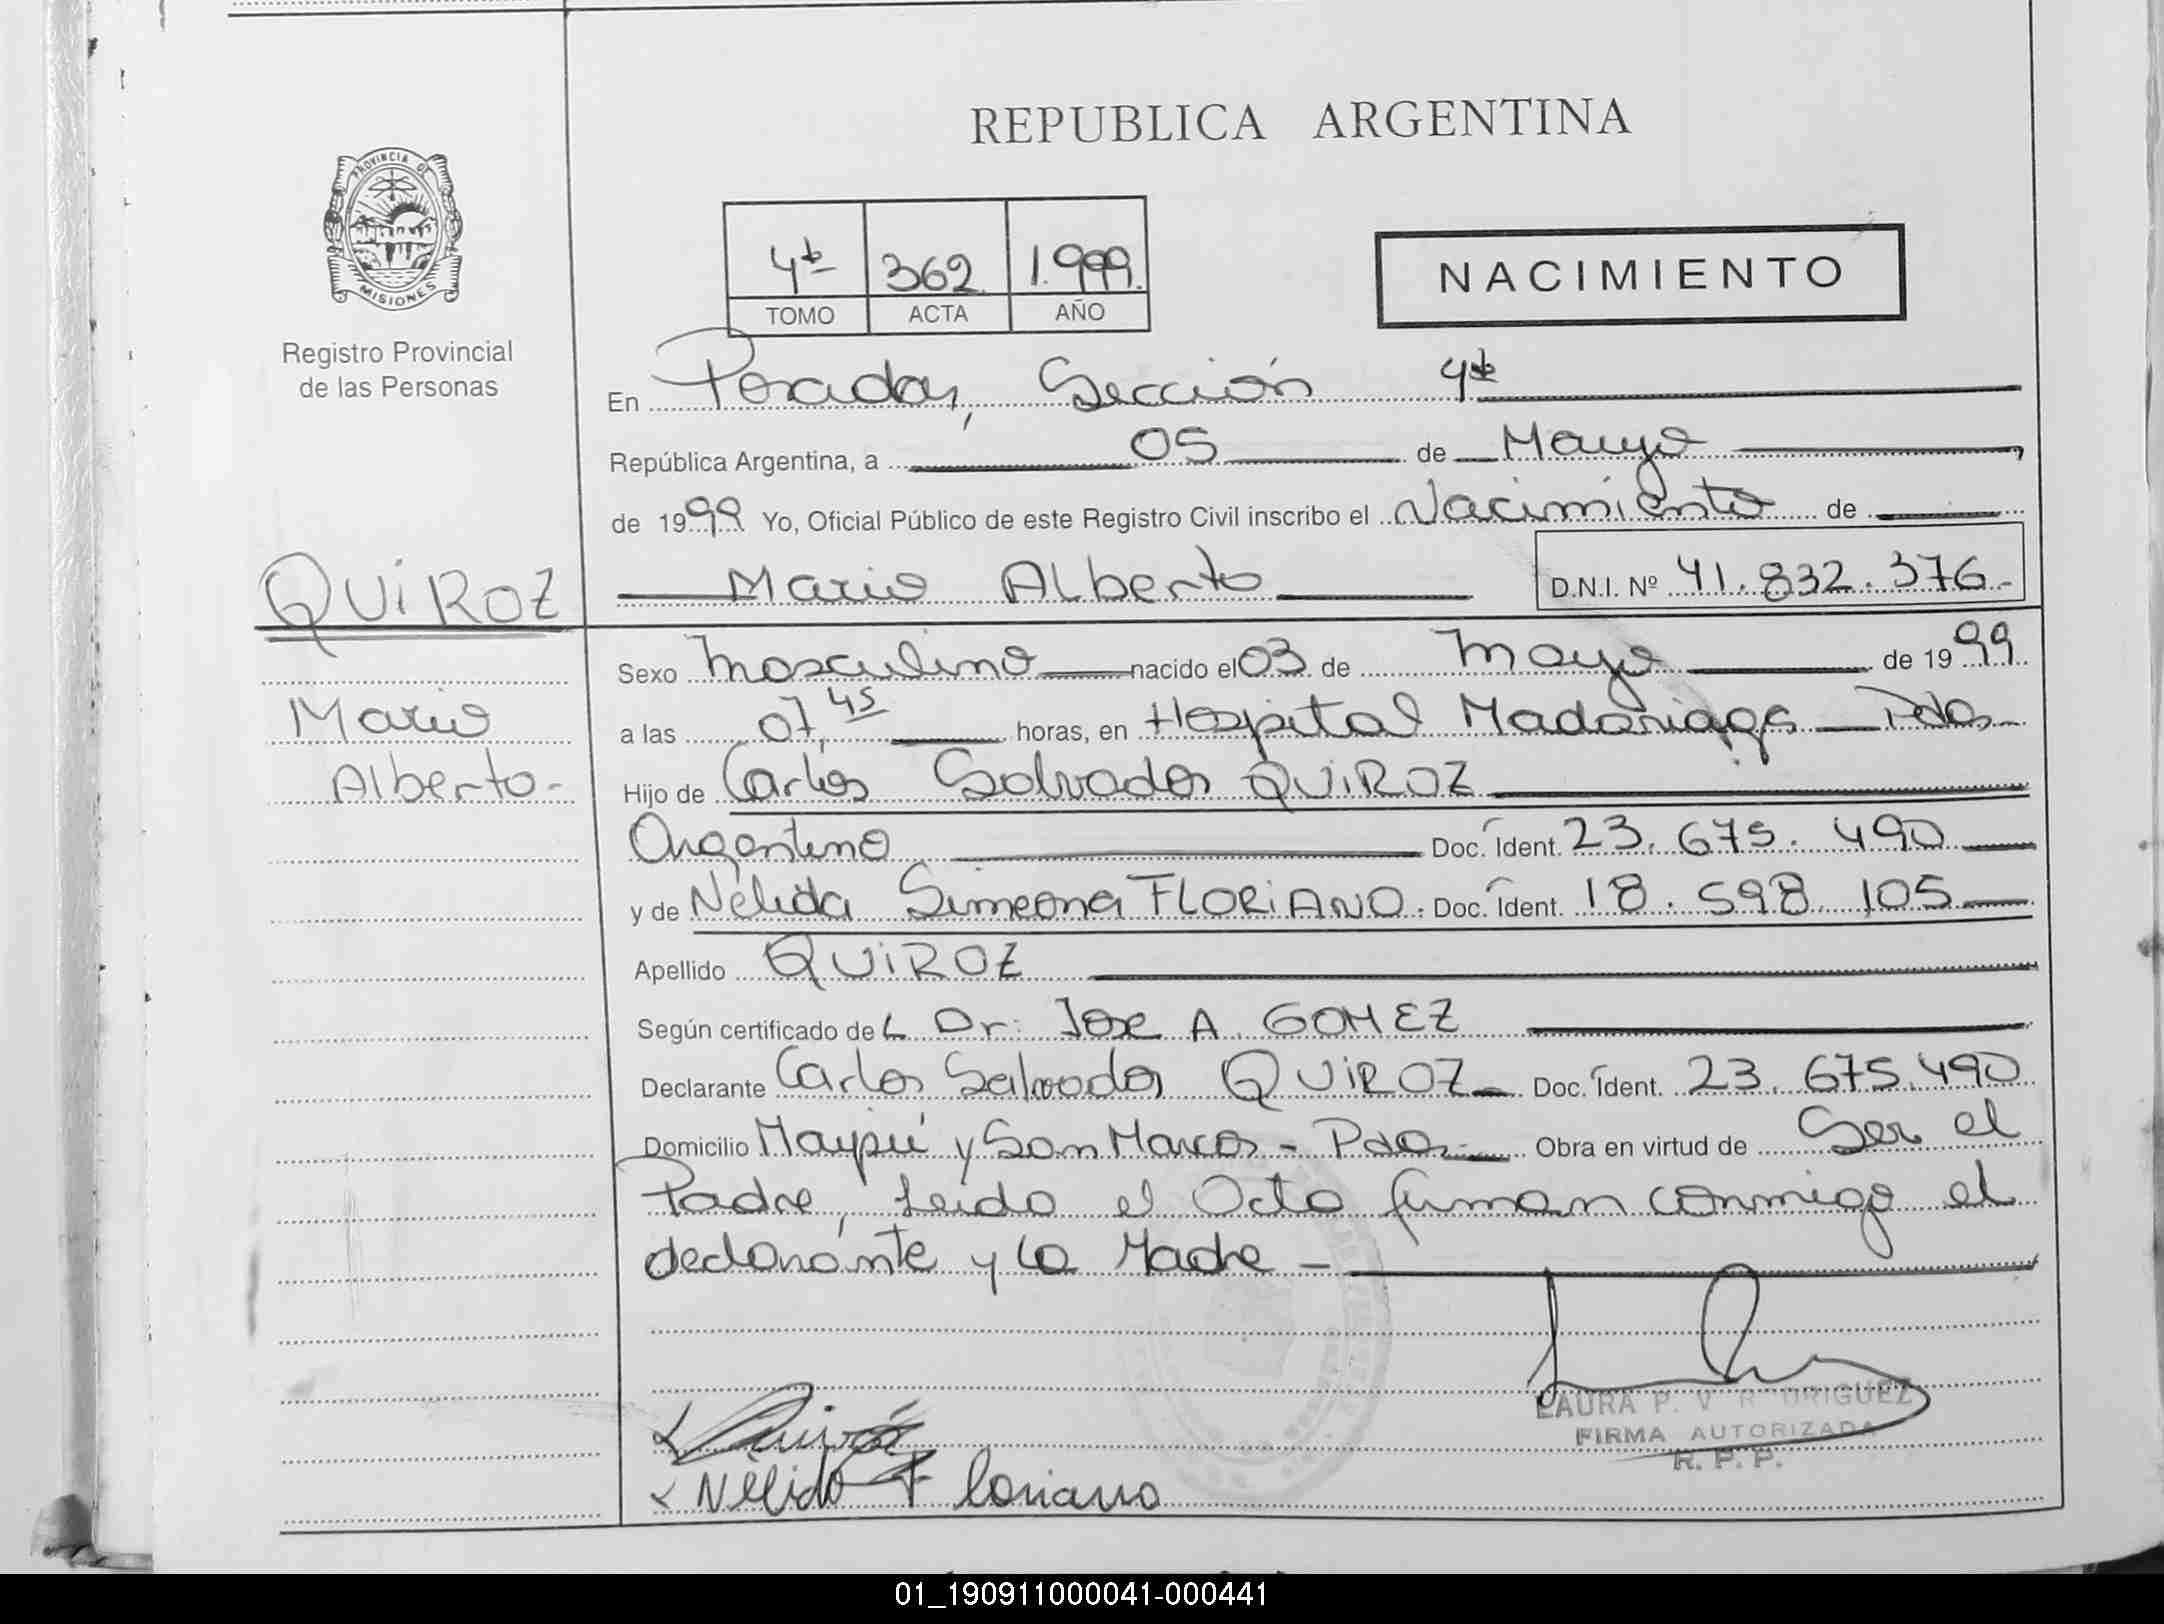 REPUBLICA ARGENTINA
PROVINCIA DE
MISIONES
Registro Provincial
de las Personas
4ta 362 1.999.
TOMO ACTA AÑO
NACIMIENTO
En Posadas, Sección 4ta
República Argentina, a 05 de Mayo
de 1999 Yo, Oficial Público de este Registro Civil inscribo el Nacimiento de
QUIROZ
Mario Alberto D.N.I. Nº 41.832.376.-
Mario
Alberto-
Sexo Masculino nacido el 03 de Mayo de 1999
a las 07,45 horas, en Hospital Madariaga Pdas
Hijo de Carlos Salvador QUIROZ
Argentino Doc. Ident. 23.675.490
y de Nélida Simeona FLORIANO. Doc. Ident. 18.598.105
Apellido QUIROZ
Según certificado de L Dr. Jose A. GOMEZ
Declarante Carlos Salvador QUIROZ Doc. Ident. 23.675.490
Domicilio Maypú y San Marcos - Pdas. Obra en virtud de Ser el
Padre, Leido el Acta firman conmigo el
declarante y la Madre -
LAURA P. V. RODRIGUEZ
FIRMA AUTORIZADA
R. P. P.
Nélida Floriano
01_190911000041-000441